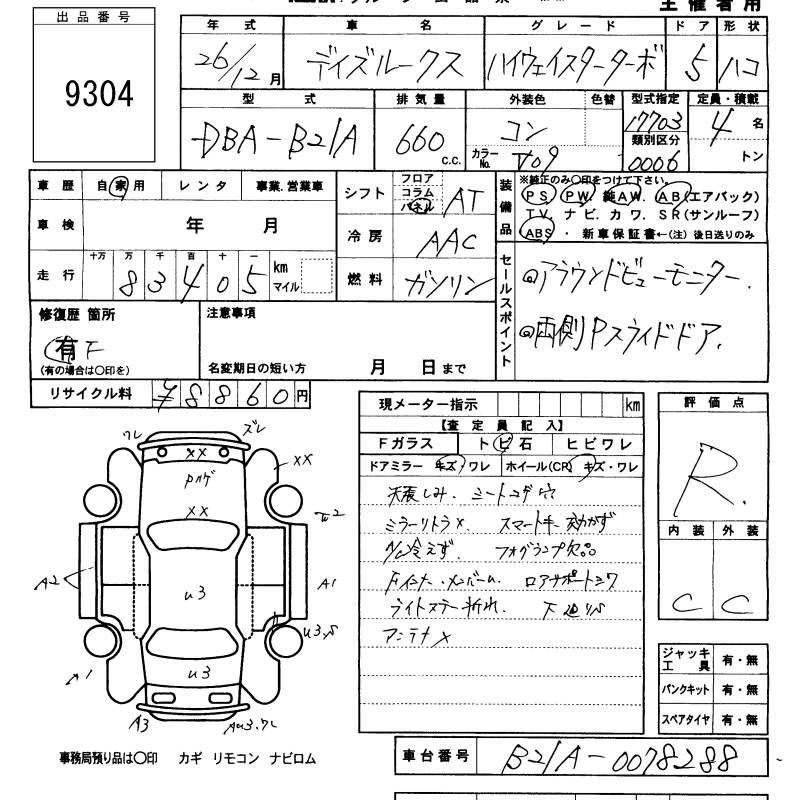 主催者用
出品番号
9304
年式 車名 グレード ドア 形状
26/12月 デイズルークス ハイウェイスターターボ 5 ハコ
型式 排気量 外装色 色替 型式指定 定員・積載
DBA-B21A 660 c.c. コン 17703 4名
カラーNo. V09 類別区分 0006 トン
車歴 自家用 レンタ 事業.営業車
シフト フロア コラム パネル AT
装備品 ※純正のみ〇印をつけて下さい。
PS. PW. 純AW. AB(エアバック)
TV. ナビ. カワ. SR(サンルーフ)
ABS・新車保証書←(注)後日送りのみ
車検 年 月
冷房 AAC
走行 十万 万 千 百 十 一
83405 km マイル
燃料 ガソリン
セールスポイント
◎アラウンドビューモニター.
◎両側Pスライドドア.
修復歴 箇所
有 F
(有の場合は〇印を)
注意事項
名変期日の短い方 月 日まで
リサイクル料 ¥8860円
現メーター指示 km
【査定員記入】
Fガラス トビ石 ヒビワレ
ドアミラー キズ/ワレ ホイール(CR) キズ・ワレ
天張しみ. シートコゲ穴
ミラーリトラ×. スマートキー効かず
A/C冷えず. フォグランプ欠品
Fインナー・メンバーm. ロアサポートミワ
ライトステー折れ. 下廻りS
アンテナ×
評価点
R.
内装 外装
C C
ワレ ズレ
××
××
Pハゲ
××
A2 A1
u3
u3.S
u3
A1
A3
Au3.ワレ
ジャッキ工具 有・無
パンクキット 有・無
スペアタイヤ 有・無
事務局預り品は〇印 カギ リモコン ナビロム
車台番号 B21A-0078288